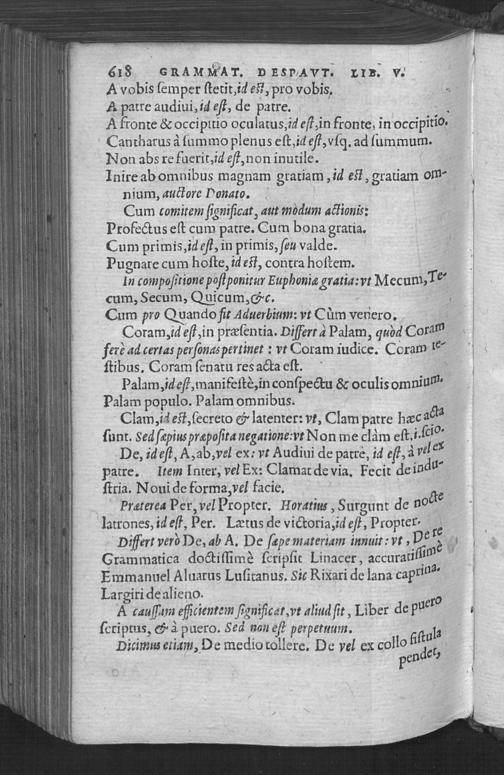 618 GRAMMAT. DESPAVT. LIB. V.
A vobis semper stetit, id est, pro vobis.
A patre audiui, id est, de patre.
A fronte & occipitio oculatus, id est, in fronte, in occipitio.
Cantharus à summo plenus est, id est, vsq. ad summum.
Non abs re fuerit, id est, non inutile.
Inire ab omnibus magnam gratiam, id est, gratiam om-
nium, auctore Donato.
Cum comitem significat, aut modum actionis:
Profectus est cum patre. Cum bona gratia.
Cum primis, id est, in primis, seu valde.
Pugnare cum hoste, id est, contra hostem.
In compositione postponitur Euphoniæ gratia: vt Mecum, Te-
cum, Secum, Quicum, &c.
Cum pro Quando fit Aduerbium: vt Cùm venero.
Coram, id est, in præsentia. Differt à Palam, quòd Coram
ferè ad certas personas pertinet: vt Coram iudice. Coram te-
stibus. Coram senatu res acta est.
Palam, id est, manifestè, in conspectu & oculis omnium.
Palam populo. Palam omnibus.
Clam, id est, secreto & latenter: vt, Clam patre hæc acta
sunt. Sed sæpius præposita negatione: vt Non me clàm est, i. scio.
De, id est, A, ab, vel ex: vt Audiui de patre, id est, à vel ex
patre. Item Inter, vel Ex: Clamat de via. Fecit de indu-
stria. Noui de forma, vel facie.
Præterea Per, vel Propter. Horatius, Surgunt de nocte
latrones, id est, Per. Lætus de victoria, id est, Propter.
Differt verò De, ab A. De sæpe materiam innuit: vt, De re
Grammatica doctissimè scripsit Linacer, accuratissimè
Emmanuel Aluarus Lusitanus. Sic Rixari de lana caprina.
Largiri de alieno.
A caussam efficientem significat, vt aliud sit, Liber de puero
scriptus, & à puero. Sed non est perpetuum.
Dicimus etiam, De medio tollere. De vel ex collo fistula
pendet,